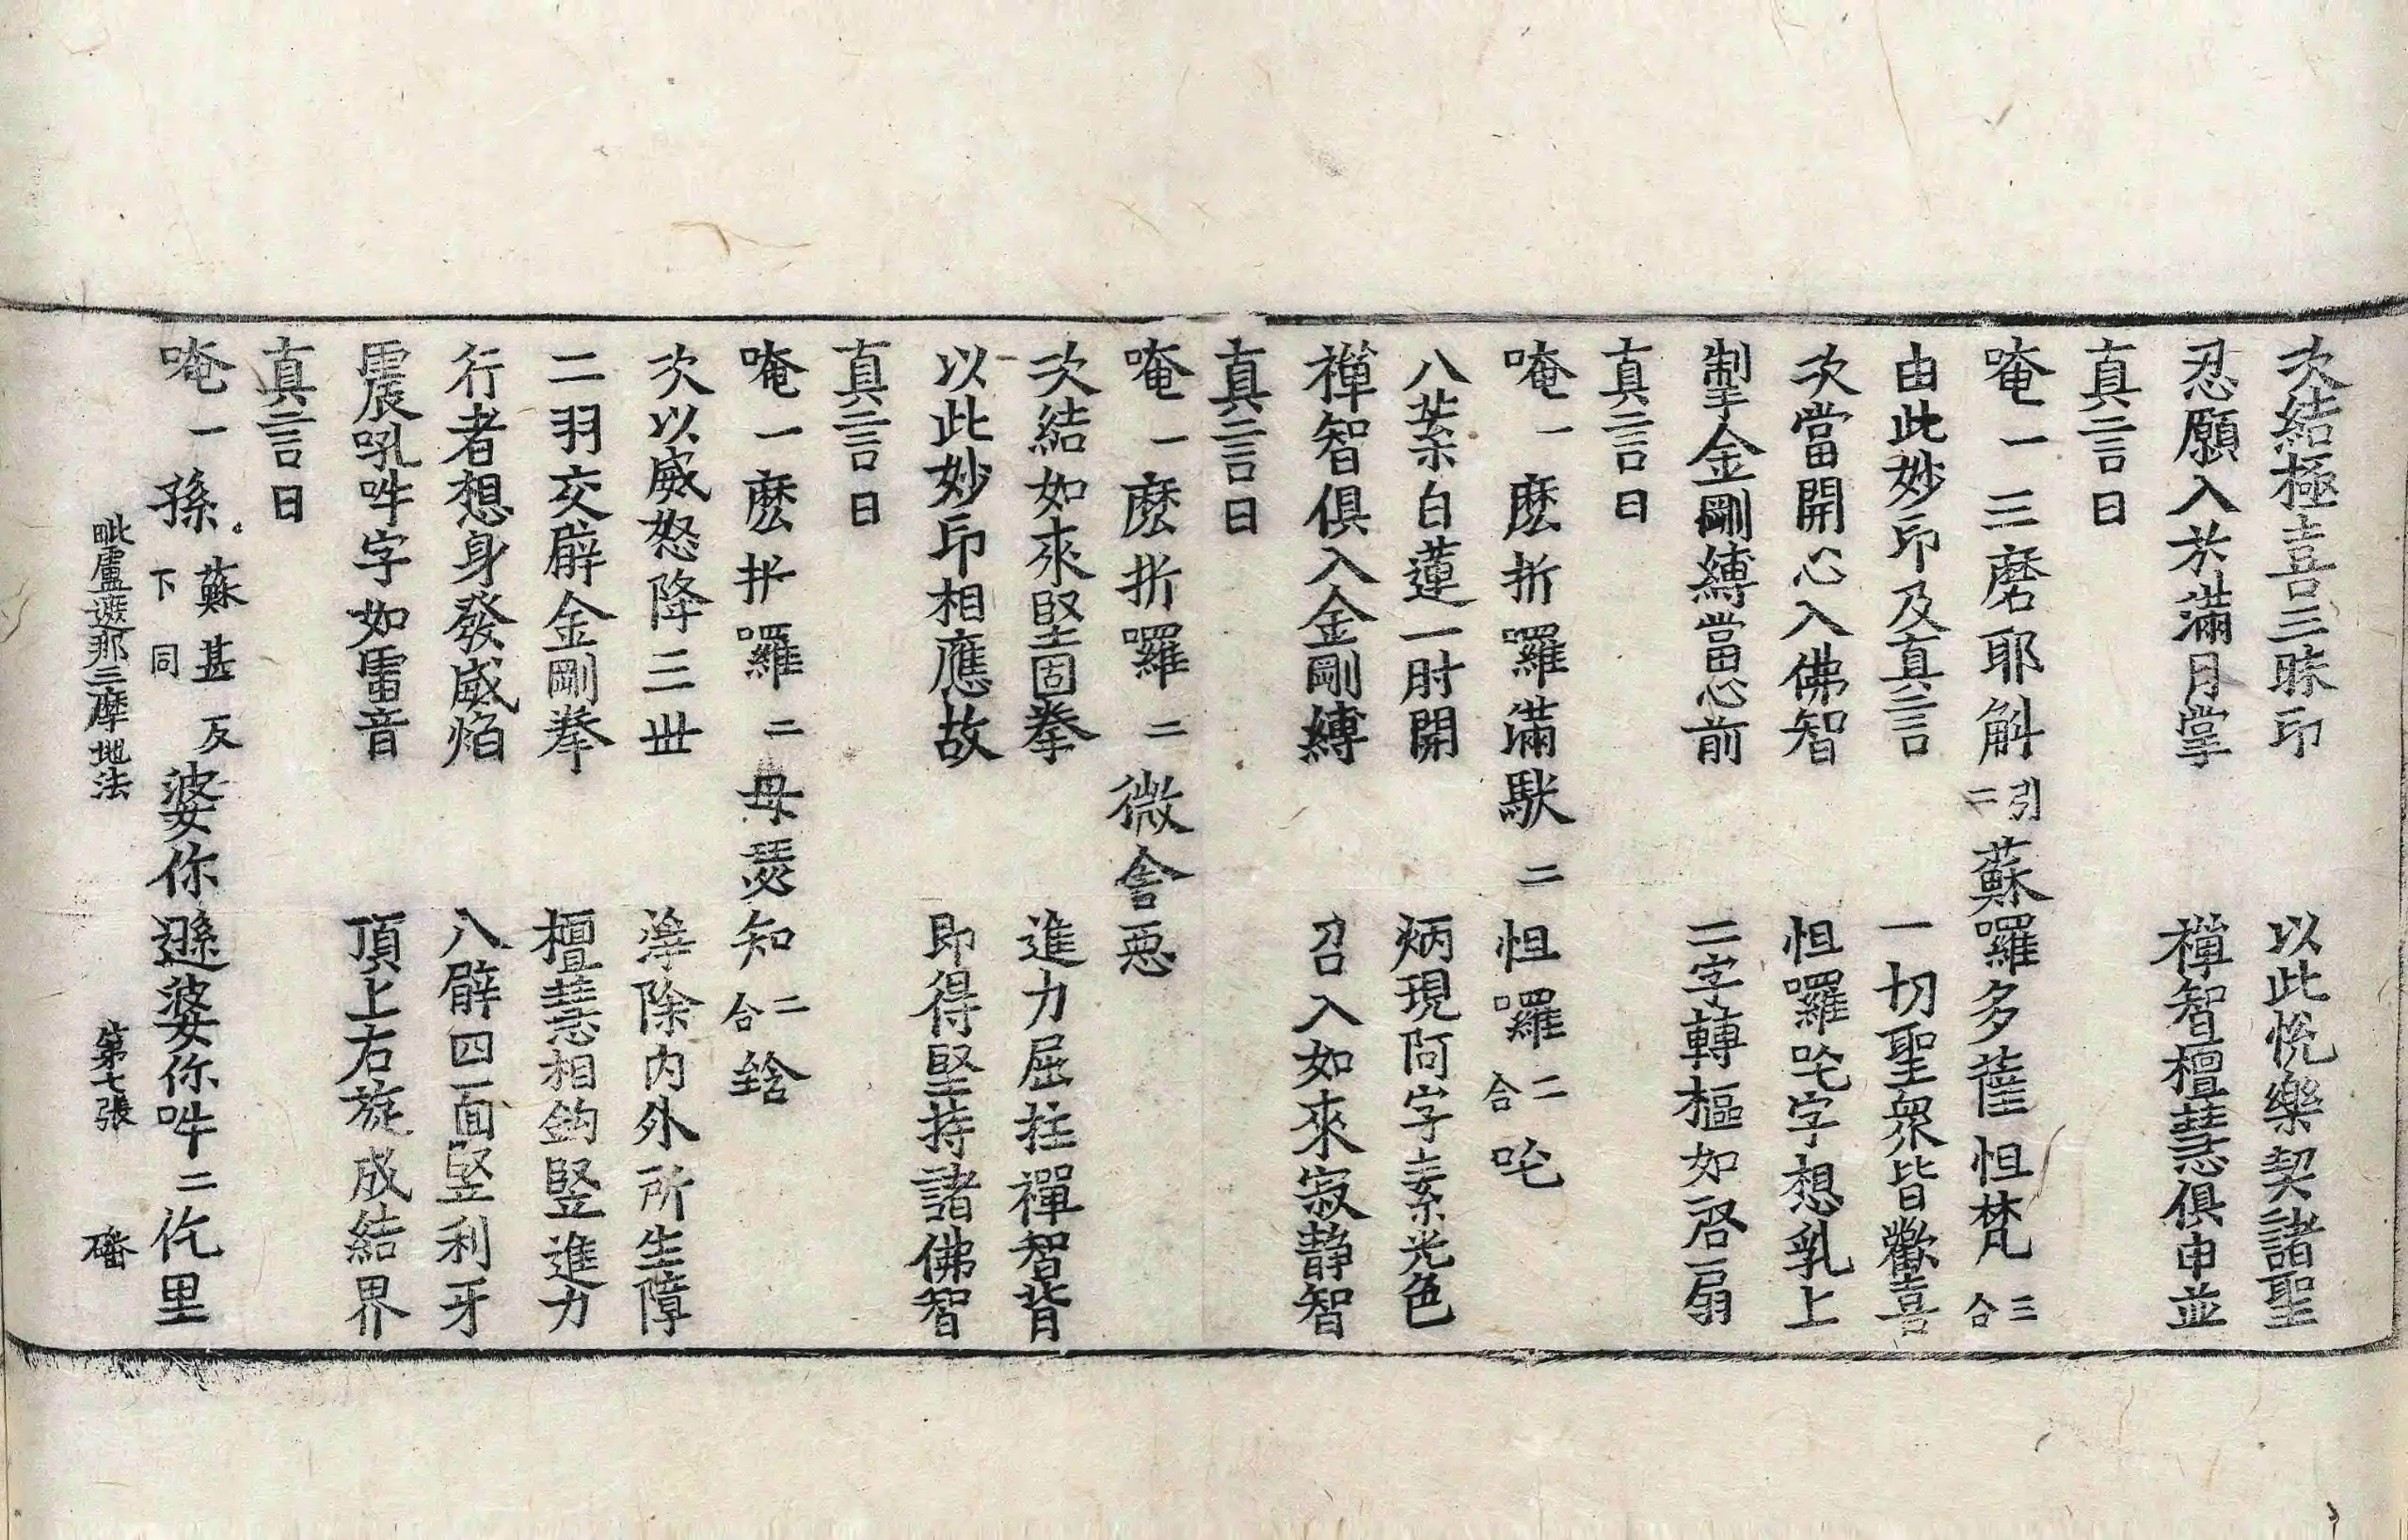 次結極喜三昧印　以此悅樂契諸聖
忍願入於滿月掌　禪智檀慧俱申並
真言曰
唵一三磨耶斛引二蘇囉多薩怛梵三合
由此妙印及真言　一切聖衆皆歡喜
次當開心入佛智　怛囉吒字想乳上
掣金剛縛當心前　二字轉樞如啓扇
真言曰
唵一麽折囉滿馱二怛囉二合吒
八葉白蓮一肘開　炳現阿字素光色
禪智俱入金剛縛　召入如來寂靜智
真言曰
唵一麽折囉二微舍惡
次結如來堅固拳　進力屈拄禪智背
以此妙印相應故　即得堅持諸佛智
真言曰
唵一麽折囉二母瑟知二合鋡
次以威怒降三世　淨除內外所生障
二羽交臂金剛拳　檀慧相鈎豎進力
行者想身發威焰　八臂四面豎利牙
震吼吽字如雷音　頂上右旋成結界
真言曰
唵一孫蘇甚反下同婆你遜婆你吽二仡里
毗盧遮那三摩地法　第七張　磻